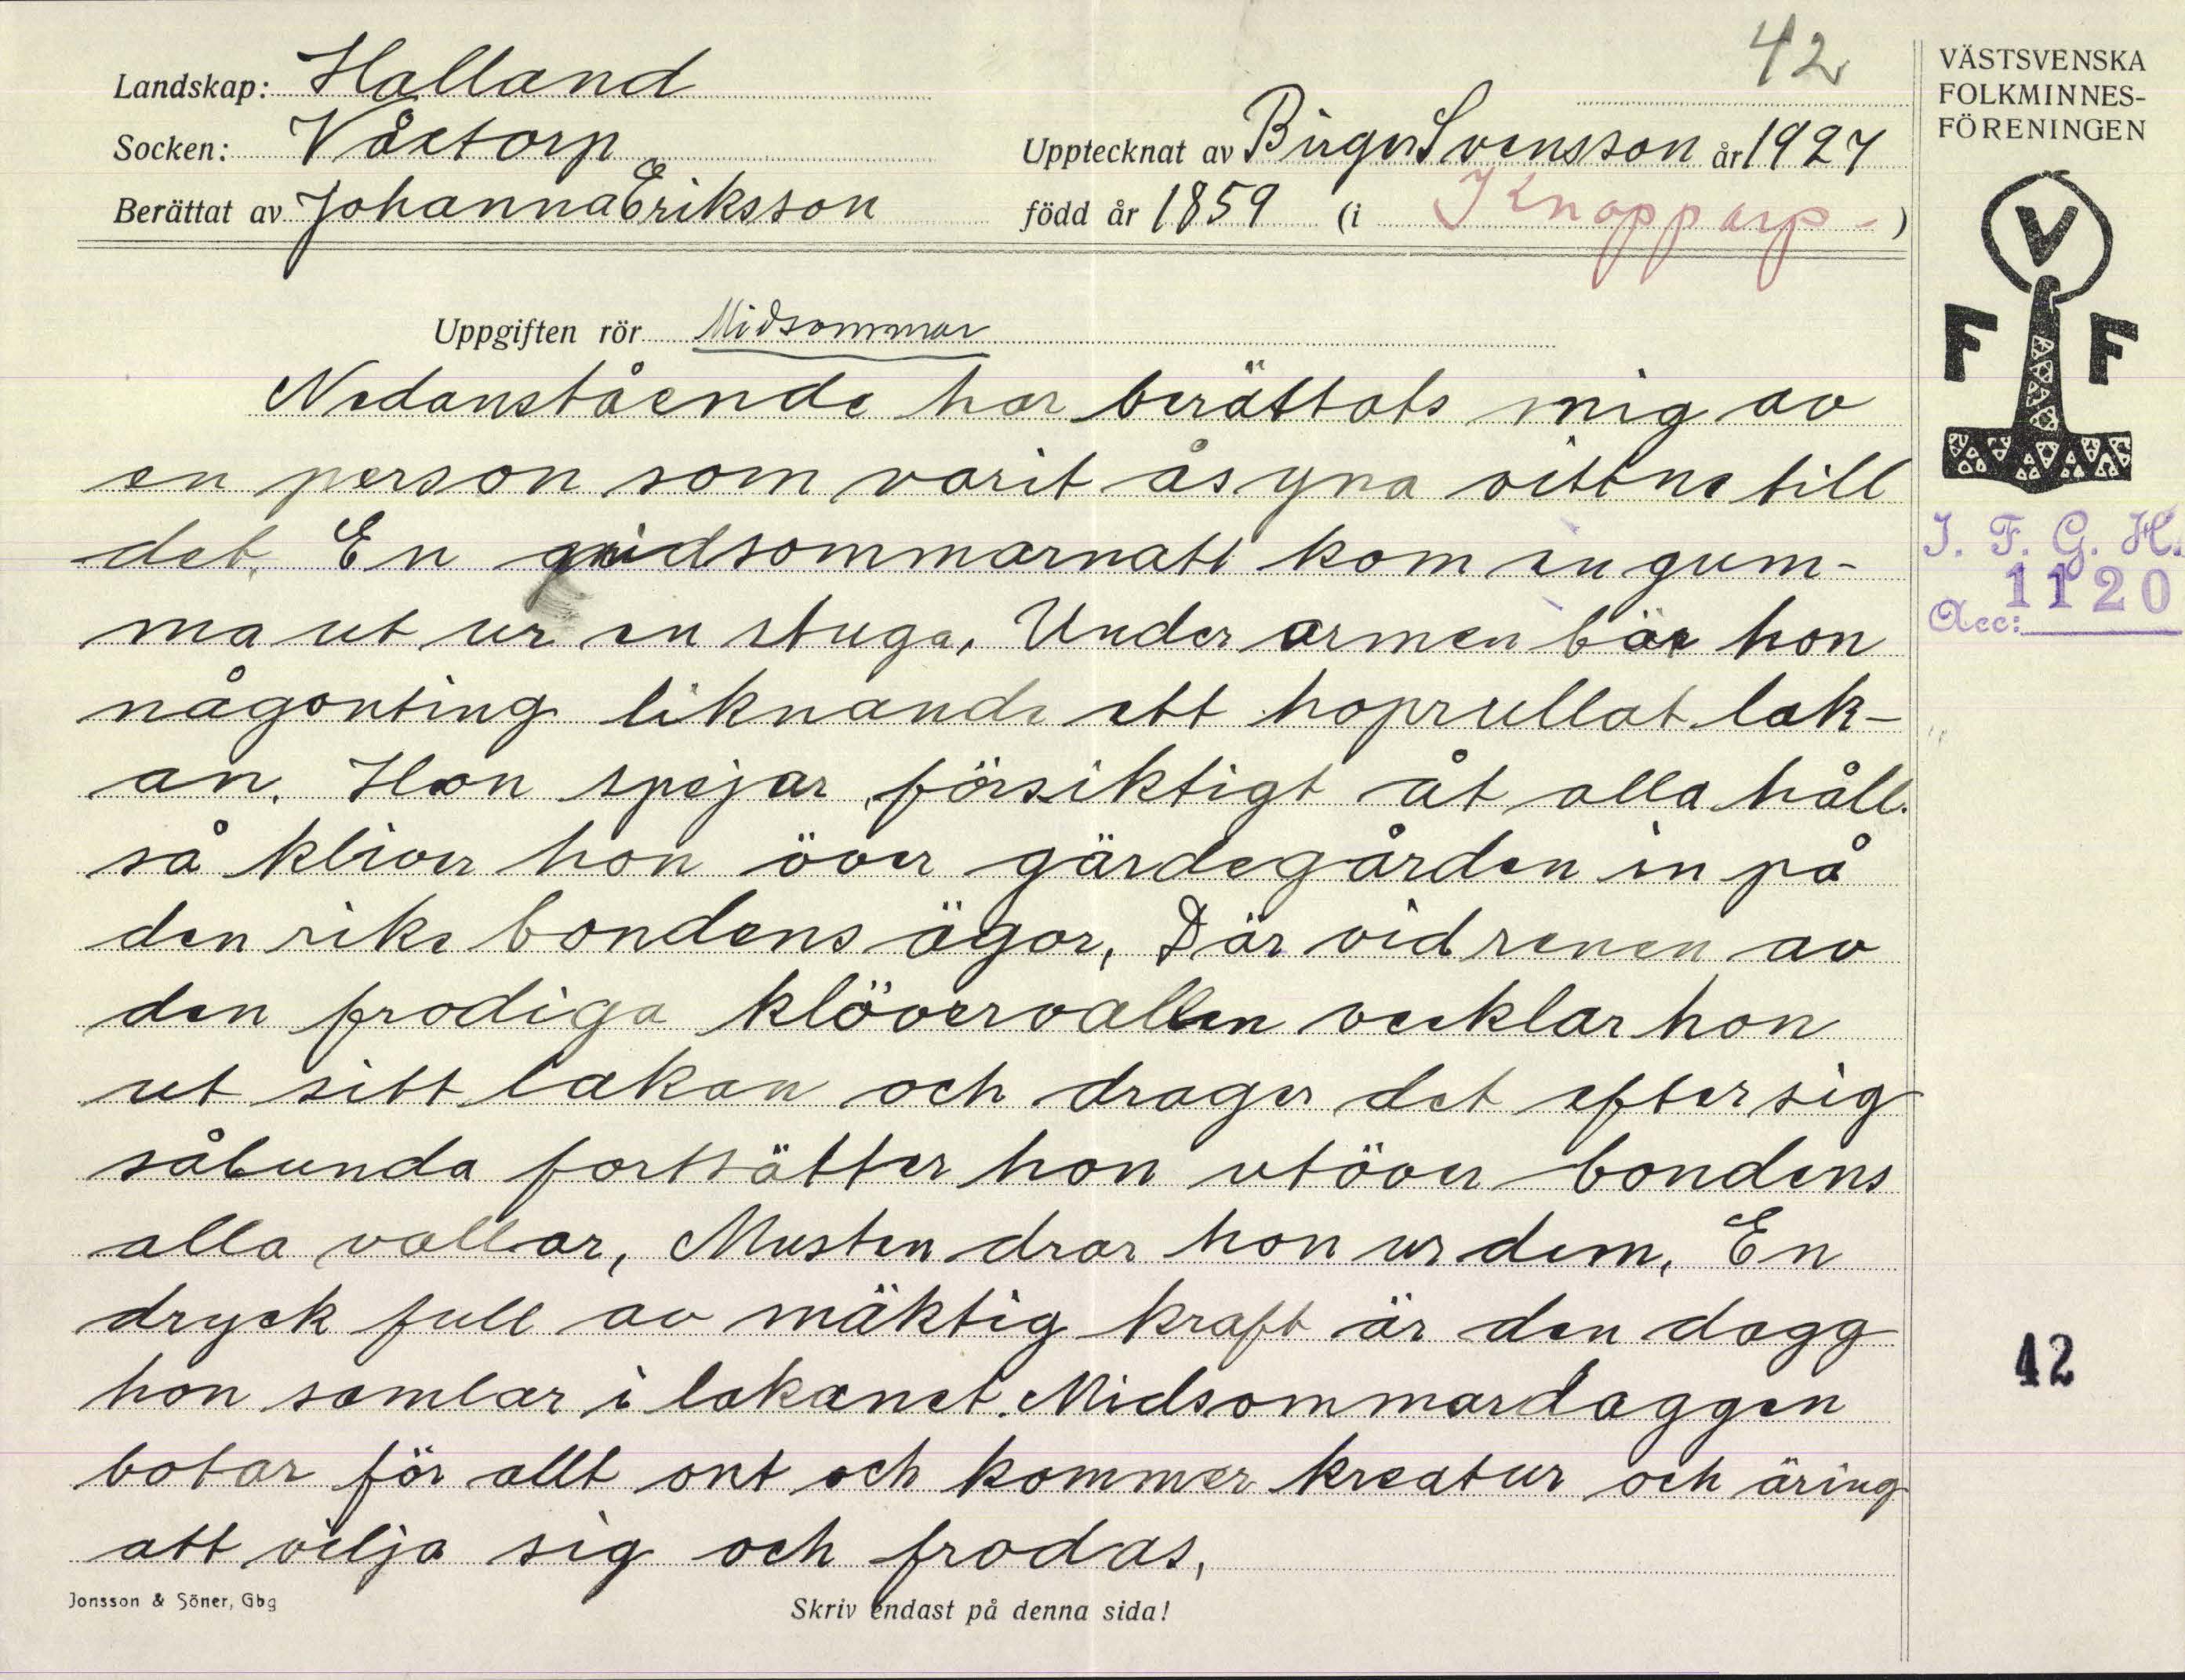 42
Landskap: Halland
Socken: Våxtorp
Upptecknat av Birger Svensson år 1927
Berättat av Johanna Eriksson
född år 1859 (i Knopparp-)
Uppgiften rör Midsommar
Nedanstående har berättats mig av
en person som varit åsyna vittne till
det. En midsommarnatt kom en gum-
ma ut ur en stuga. Under armen bär hon
någonting liknande ett hoprullat lak-
an. Hon spejar försiktigt åt alla håll.
så kliver hon över gärdegården in på
den rike bondens ägor, Där vid renen av
den frodiga klövervallen vecklar hon
ut sitt lakan och drager det efter sig
sålunda fortsätter hon utöver bondens
alla vallar, Musten drar hon ur dem. En
dryck full av mäktig kraft är den dagg
hon samlar i lakanet. Midsommardaggen
botar för allt ont och kommer kreatur och äring
att vilja sig och frodas,
Jonsson & Söner, Gbg
Skriv endast på denna sida!
VÄSTSVENSKA
FOLKMINNES-
FÖRENINGEN
V
F F
I. F. G. H.
Acc: 1120
42